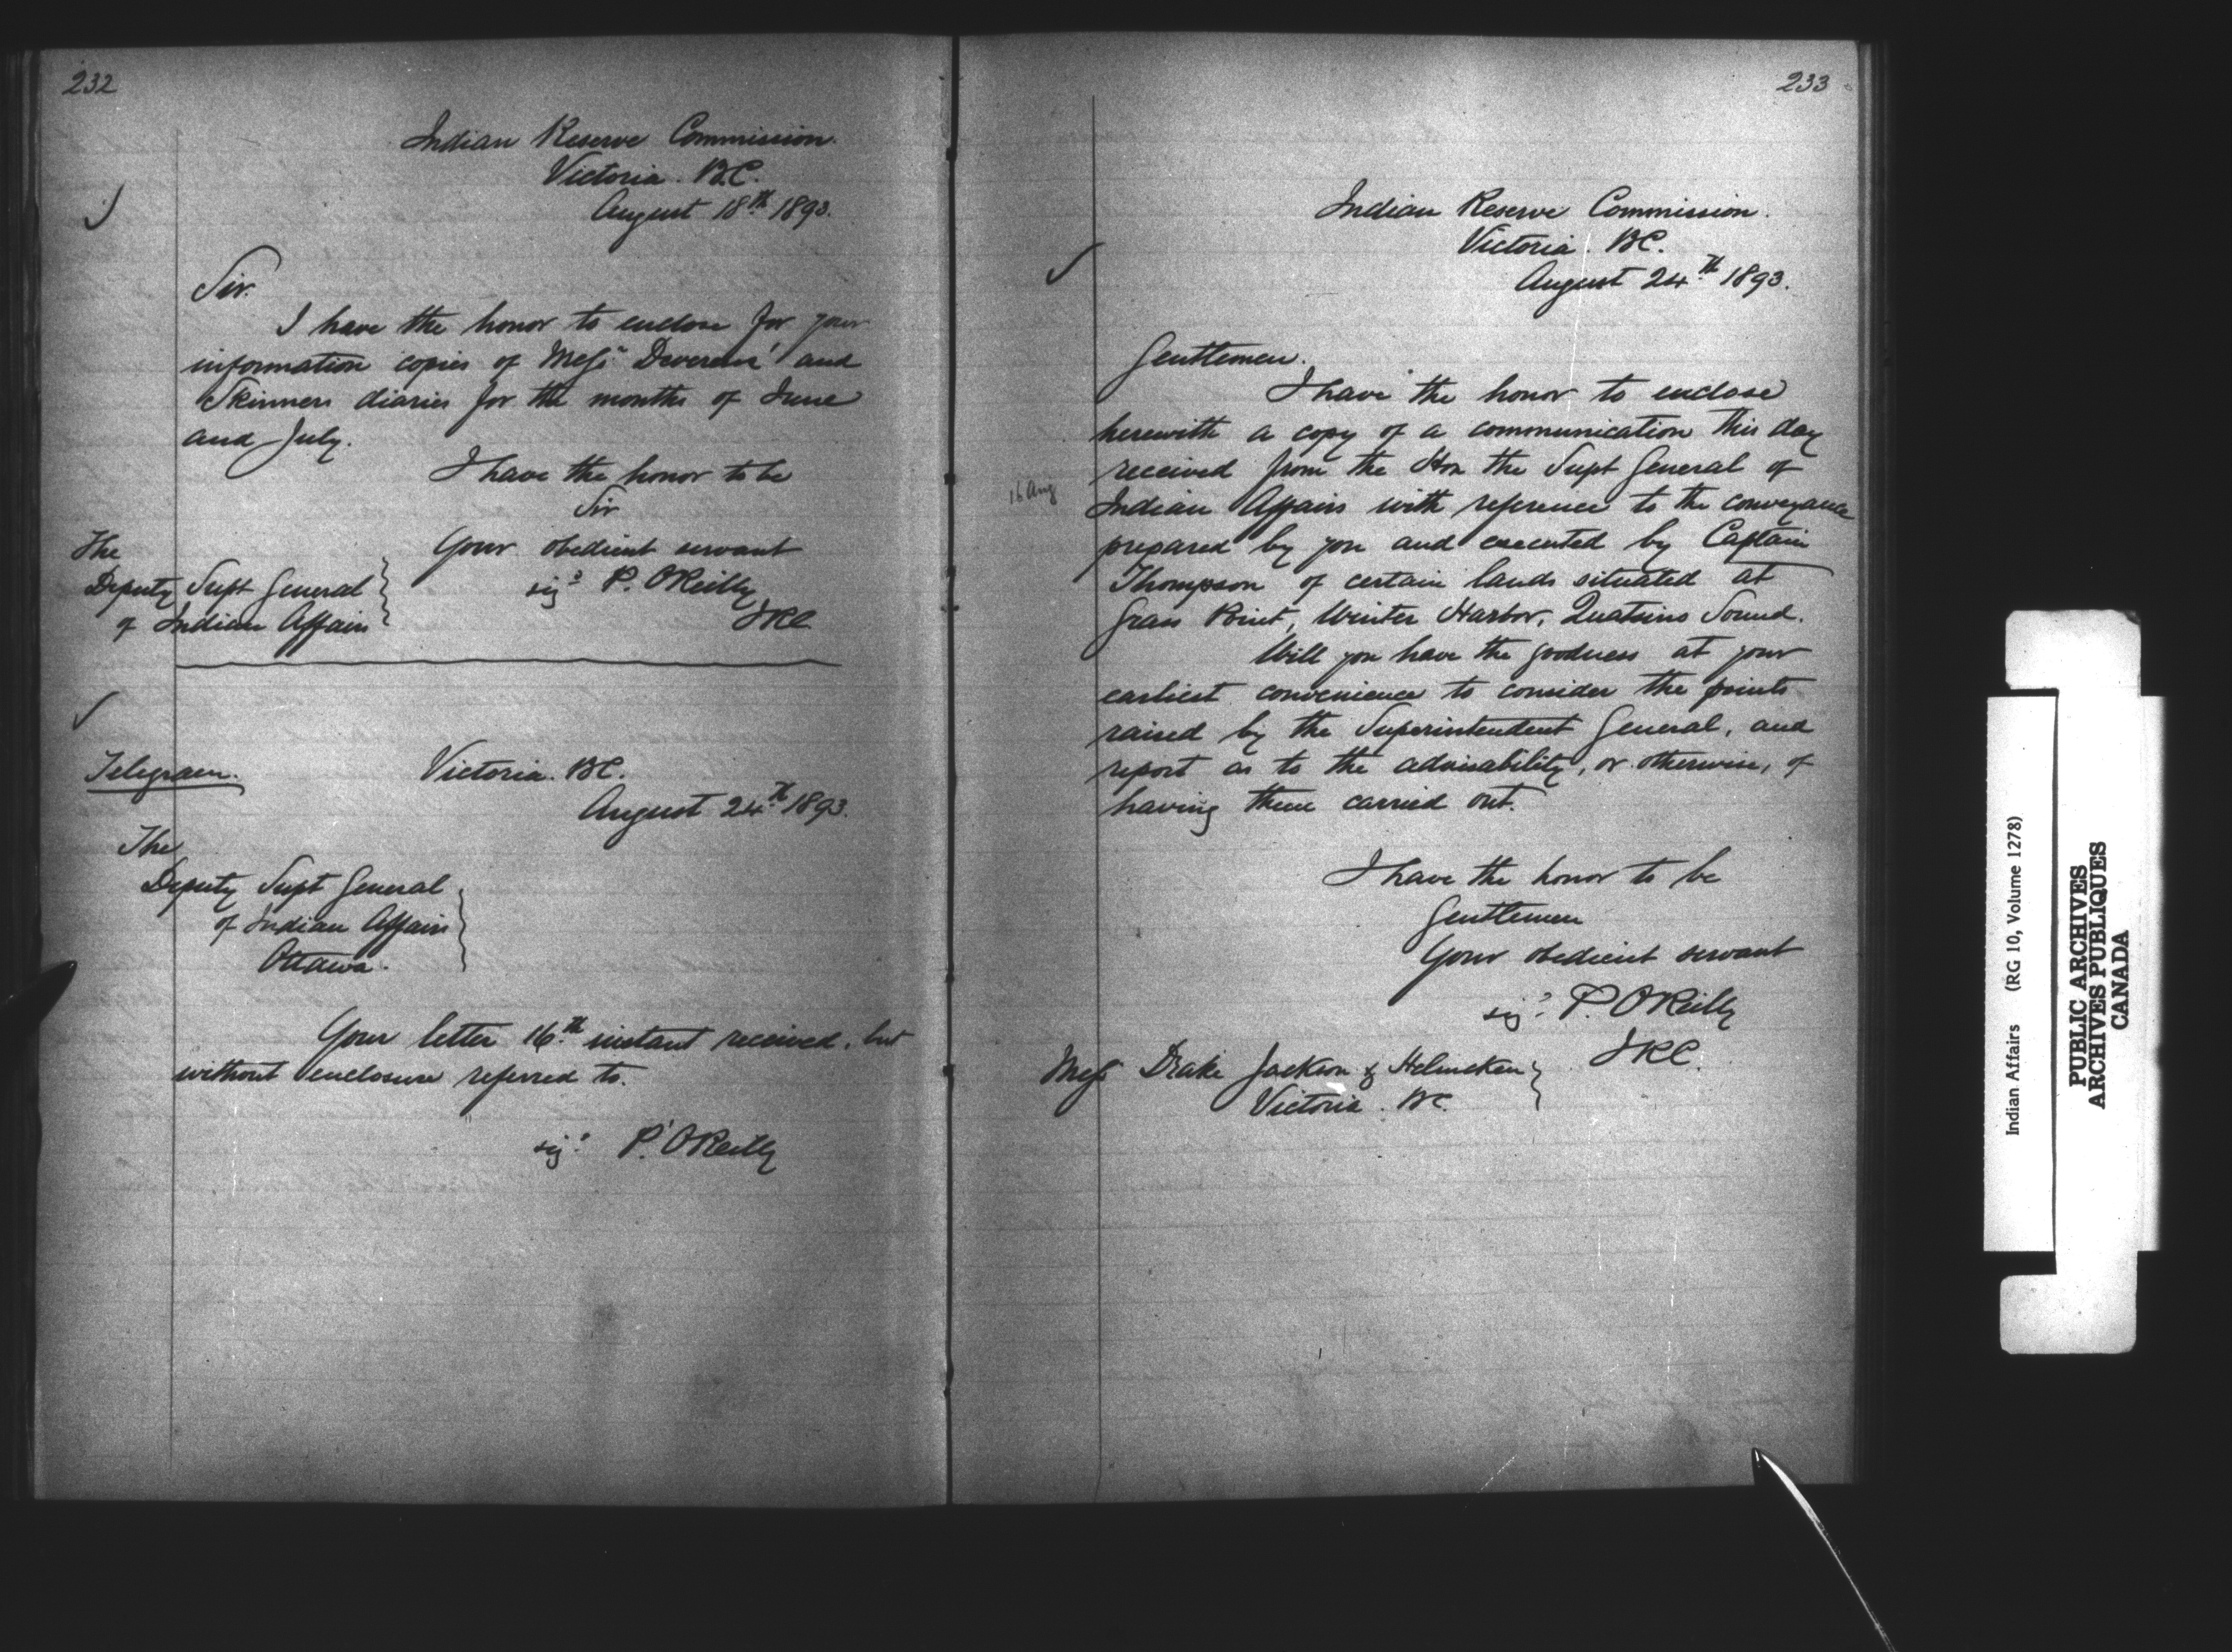 232
Indian Reserve Commission.
Victoria. B.C.
August 18th 1893.
Sir.
I have the honor to enclose for your
information copies of Messrs Devereux' and
Skinners diaries for the months of June
and July.
I have the honor to be
Sir
Your obedient servant
sigd P. O'Reilly
IRC.
The
Deputy Supt General
of Indian Affairs
Telegram.
Victoria. BC.
August 24th 1893.
The
Deputy Supt General
of Indian Affairs
Ottawa.
Your letter 16th instant received, but
without enclosure referred to.
sigd P. O'Reilly
233
Indian Reserve Commission.
Victoria. BC.
August 24th 1893.
Gentlemen.
I have the honor to enclose
herewith a copy of a communication this day
received from the Hon the Supt General of
16 Aug
Indian Affairs with reference to the conveyance
prepared by you and executed by Captain
Thompson of certain lands situated at
Grass Point, Winter Harbor, Quatsino Sound.
Will you have the goodness at your
earliest convenience to consider the points
raised by the Superintendent General, and
report as to the advisability, or otherwise, of
having them carried out.
I have the honor to be
Gentlemen
Your obedient servant
sigd P. O'Reilly
IRC.
Messrs Drake Jackson & Helmcken
Victoria. BC.
Indian Affairs (RG 10, Volume 1278)
PUBLIC ARCHIVES
ARCHIVES PUBLIQUES
CANADA